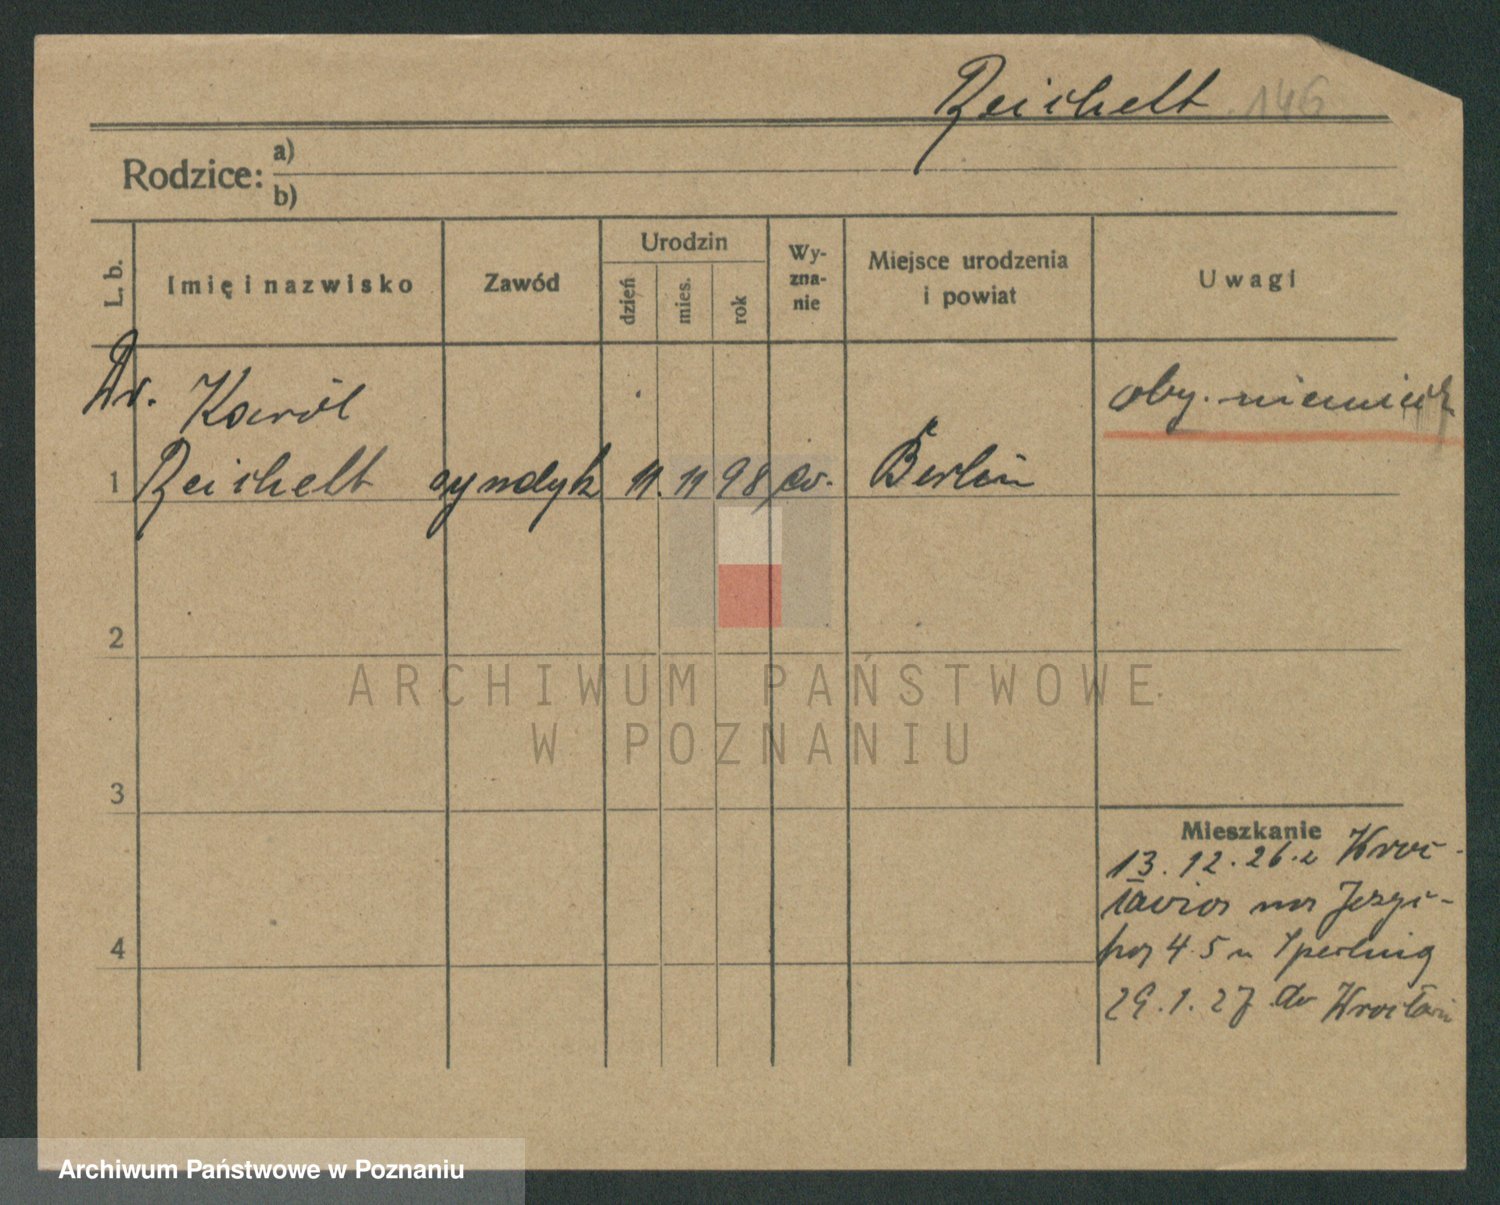 Reichelt 146
Rodzice: a)
b)
L. b. Imię i nazwisko Zawód Urodzin dzień mies. rok Wy-zna-nie Miejsce urodzenia i powiat Uwagi
Dr. Karól oby. niemieck
1 Reichelt syndyk 11. 11 98 ev. Berlin
2
ARCHIWUM PAŃSTWOWE
W POZNANIU
3
Mieszkanie
13. 12. 26. z Wroc-
ławia na Jezyc-
4 4. 5 u Sperling
29. 1. 27 do Wrocławia
Archiwum Państwowe w Poznaniu